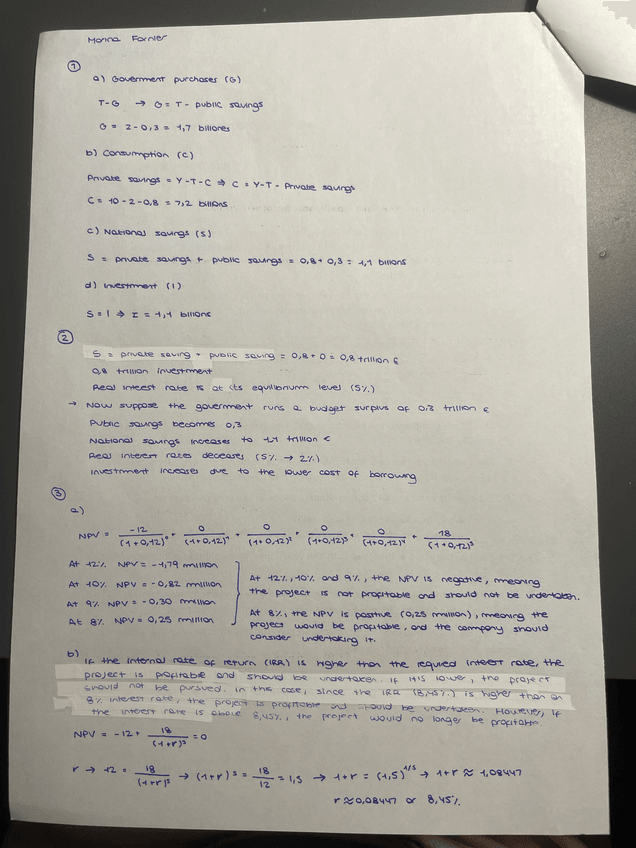 Marina Fornier
①
a) Government purchases (G)
T-G → G = T - public savings
G = 2-0,3 = 1,7 billones
b) Consumption (C)
Private savings = Y-T-C ⇒ C = Y-T - Private savings
C = 10-2-0,8 = 7,2 billions
c) National savings (S)
S = private savings + public savings = 0,8+0,3 = 1,1 billions
d) Investment (I)
S = I ⇒ I = 1,1 billions
②
S = private saving + public saving = 0,8+0 = 0,8 trillion €
0,8 trillion investment
Real interest rate is at its equilibrium level (5%)
→ Now suppose the government runs a budget surplus of 0.3 trillion €
Public savings becomes 0,3
National savings increases to 1,1 trillion €
Real interest rates decreases (5% → 2%)
Investment increases due to the lower cost of borrowing
③
a)
NPV = -12/(1+0,12)⁰ + 0/(1+0,12)¹ + 0/(1+0,12)² + 0/(1+0,12)³ + 0/(1+0,12)⁴ + 18/(1+0,12)⁵
At 12% NPV = -1,79 million
At 10% NPV = -0,82 million
At 9% NPV = -0,30 million
At 8% NPV = 0,25 million
At 12%, 10% and 9%, the NPV is negative, meaning
the project is not profitable and should not be undertaken.
At 8%, the NPV is positive (0,25 million), meaning the
project would be profitable, and the company should
consider undertaking it.
b)
If the internal rate of return (IRR) is higher than the required interest rate, the
project is profitable and should be undertaken. If it is lower, the project
should not be pursued. In this case, since the IRR (8,45%) is higher than an
8% interest rate, the project is profitable and should be undertaken. However, if
the interest rate is above 8,45%, the project would no longer be profitable.
NPV = -12 + 18/(1+r)⁵ = 0
r → 12 = 18/(1+r)⁵ → (1+r)⁵ = 18/12 = 1,5 → 1+r = (1,5)^1/5 → 1+r ≈ 1,08447
r ≈ 0,08447 or 8,45%